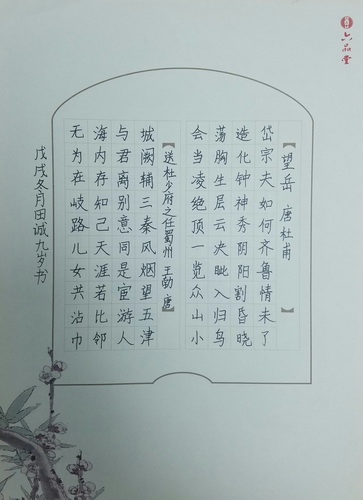 六品堂
【望岳 唐 杜甫】
岱宗夫如何齐鲁情未了
造化钟神秀阴阳割昏晓
荡胸生层云决眦入归鸟
会当凌绝顶一览众山小
【送杜少府之任蜀州 王勃 唐】
城阙辅三秦风烟望五津
与君离别意同是宦游人
海内存知己天涯若比邻
无为在岐路儿女共沾巾
戊戌冬月田诚九岁书